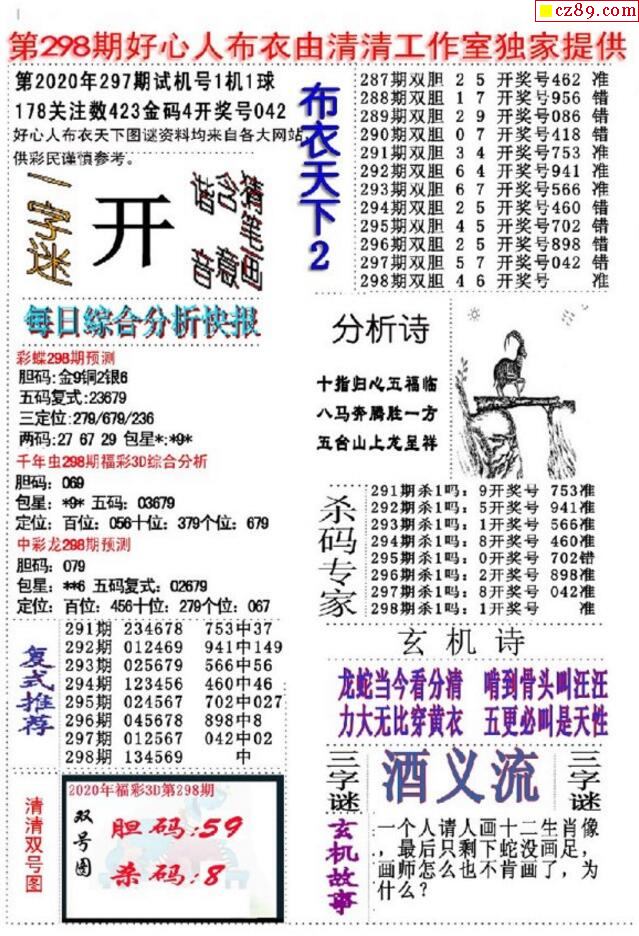 cz89.com
第298期好心人布衣由清清工作室独家提供
第2020年297期试机号1机1球
178关注数423金码4开奖号042
好心人布衣天下图谜资料均来自各大网站,
供彩民谨慎参考。
一字迷
开
猜笔画
含藏
猪 音
每日综合分析快报
彩蝶298期预测
胆码:金9铜2银6
五码复式:23679
三定位:279/679/236
两码:27 67 29 包星*:*9*
千年虫298期福彩3D综合分析
胆码: 069
包星: *9* 五码: 03679
定位: 百位: 056十位: 379个位: 679
中彩龙298期预测
胆码: 079
包星: **6 五码复式: 02679
定位: 百位: 456十位: 279个位: 067
复式推荐
291期 234678 753中37
292期 012469 941中149
293期 025679 566中56
294期 123456 460中46
295期 024567 702中027
296期 045678 898中8
297期 012567 042中02
298期 134569 中
清清双号图
2020年福彩3D第298期
双号图
胆码:59
杀码:8
布衣天下2
287期双胆 2 5 开奖号462 准
288期双胆 1 7 开奖号956 错
289期双胆 2 9 开奖号086 错
290期双胆 0 7 开奖号418 错
291期双胆 3 4 开奖号753 准
292期双胆 6 4 开奖号941 准
293期双胆 6 7 开奖号566 准
294期双胆 2 5 开奖号460 错
295期双胆 4 5 开奖号702 错
296期双胆 2 5 开奖号898 错
297期双胆 5 7 开奖号042 错
298期双胆 4 6 开奖号 准
分析诗
十指归心五福临
八马奔腾胜一方
五台山上龙呈祥
杀码专家
291期杀1吗: 9开奖号 753准
292期杀1吗: 5开奖号 941准
293期杀1吗: 1开奖号 566准
294期杀1吗: 8开奖号 460准
295期杀1吗: 0开奖号 702错
296期杀1吗: 2开奖号 898准
297期杀1吗: 8开奖号 042准
298期杀1吗: 1开奖号 准
玄机诗
龙蛇当今看分清 啃到骨头叫汪汪
力大无比穿黄衣 五更必叫是天性
三字谜
酒义流
三字谜
玄机故事
一个人请人画十二生肖像
，最后只剩下蛇没画足，
画师怎么也不肯画了，为
什么？